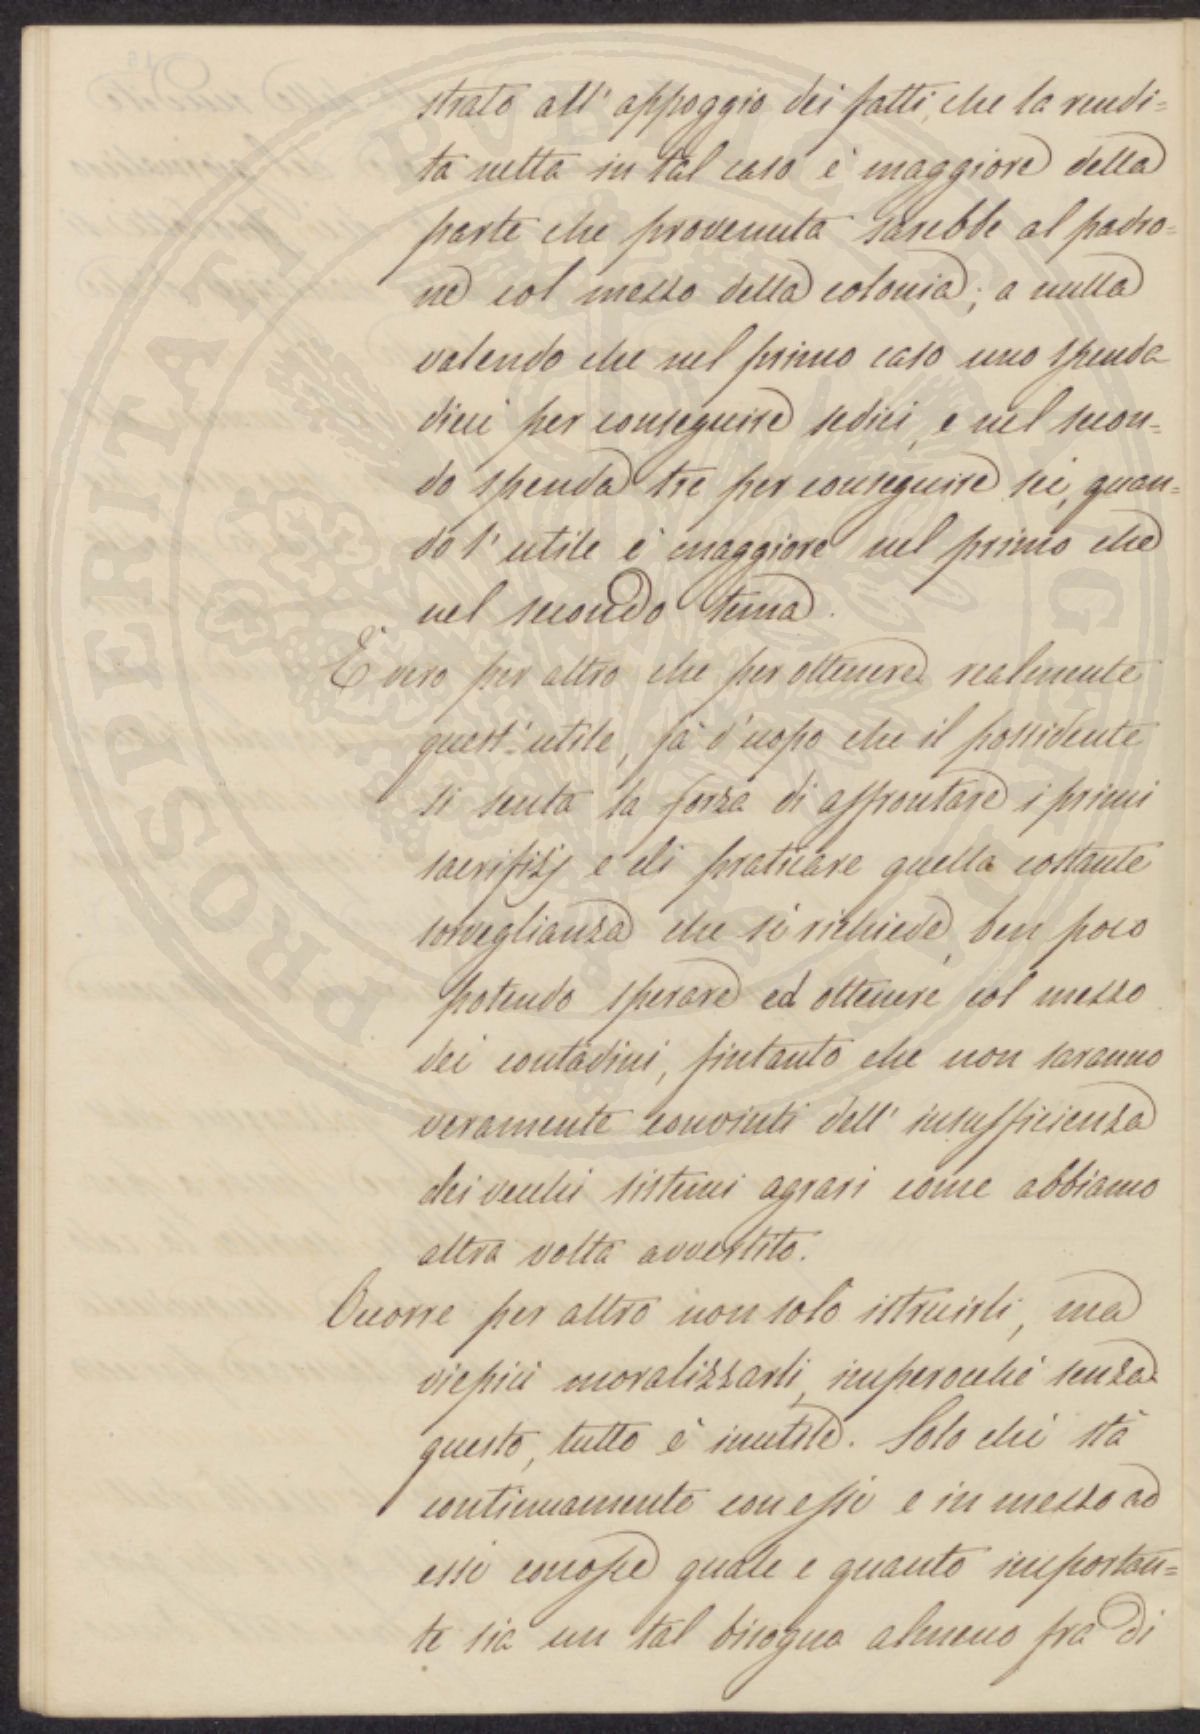 strato all' appoggio dei fatti, che la rendi=
ta netta in tal caso è maggiore della
parte che provenuta sarebbe al padro=
ne col mezzo della colonia; a nulla
valendo che nel primo caso uno spenda
dieci per conseguire sedici, e nel secon=
do spenda tre per conseguire sei, quan=
do l' utile è maggiore nel primo che
nel secondo tema.
È vero per altro che per ottenere realmente
quest' utile, fà d'uopo che il possidente
si senta la forza di affrontare i primi
sacrifizj e di praticare quella costante
sorveglianza che si richiede, ben poco
potendo sperare ed ottenere col mezzo
dei contadini, fintanto che non saranno
veramente convinti dell' insufficienza
dei vecchi sistemi agrari come abbiamo
altra volta avvertito.
Occorre per altro non solo istruirli, ma
vieppiù moralizzarli, imperocché senza
questo, tutto è inutile. Solo chi stà
continuamente con essi e in mezzo ad
essi conosce quale e quanto importan=
te sia un tal bisogno almeno fra di
PROSPERITATI PUBLICAE AUGENDAE